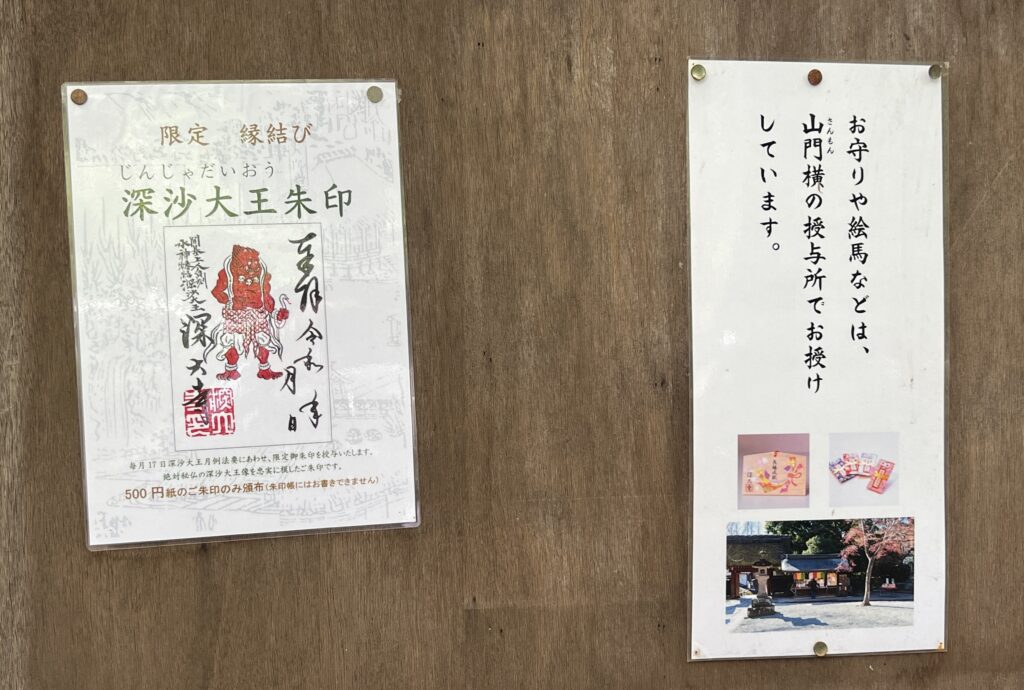 限定　縁結び
じんじゃだいおう
深沙大王朱印
奉拝 令和 年
月 日
深大寺
毎月17日深沙大王月例法要にあわせ、限定御朱印を授与いたします。
絶対秘仏の深沙大王像を忠実に模したご朱印です。
500円紙のご朱印のみ頒布(朱印帳にはお書きできません)
お守りや絵馬などは、
さんもん
山門横の授与所でお授け
しています。